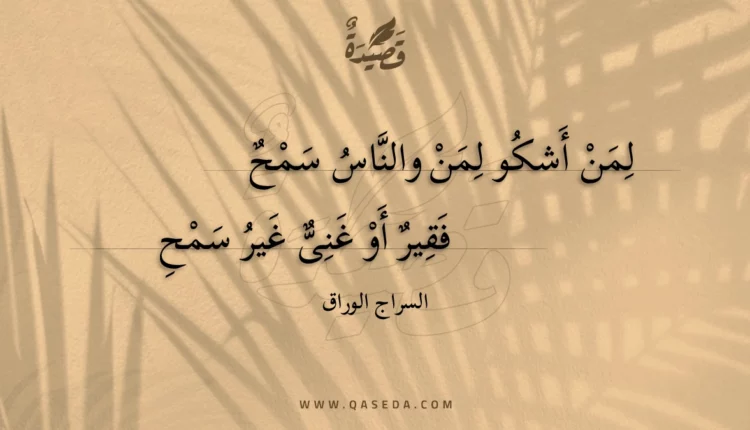 قَصِيْدَةٌ
لِمَنْ أَشكُو لِمَنْ والنَّاسُ سَمْحٌ
فَقِيرٌ أَوْ غَنِىٌّ غَيرُ سَمْحِ
السراج الوراق
WWW.QASEDA.COM